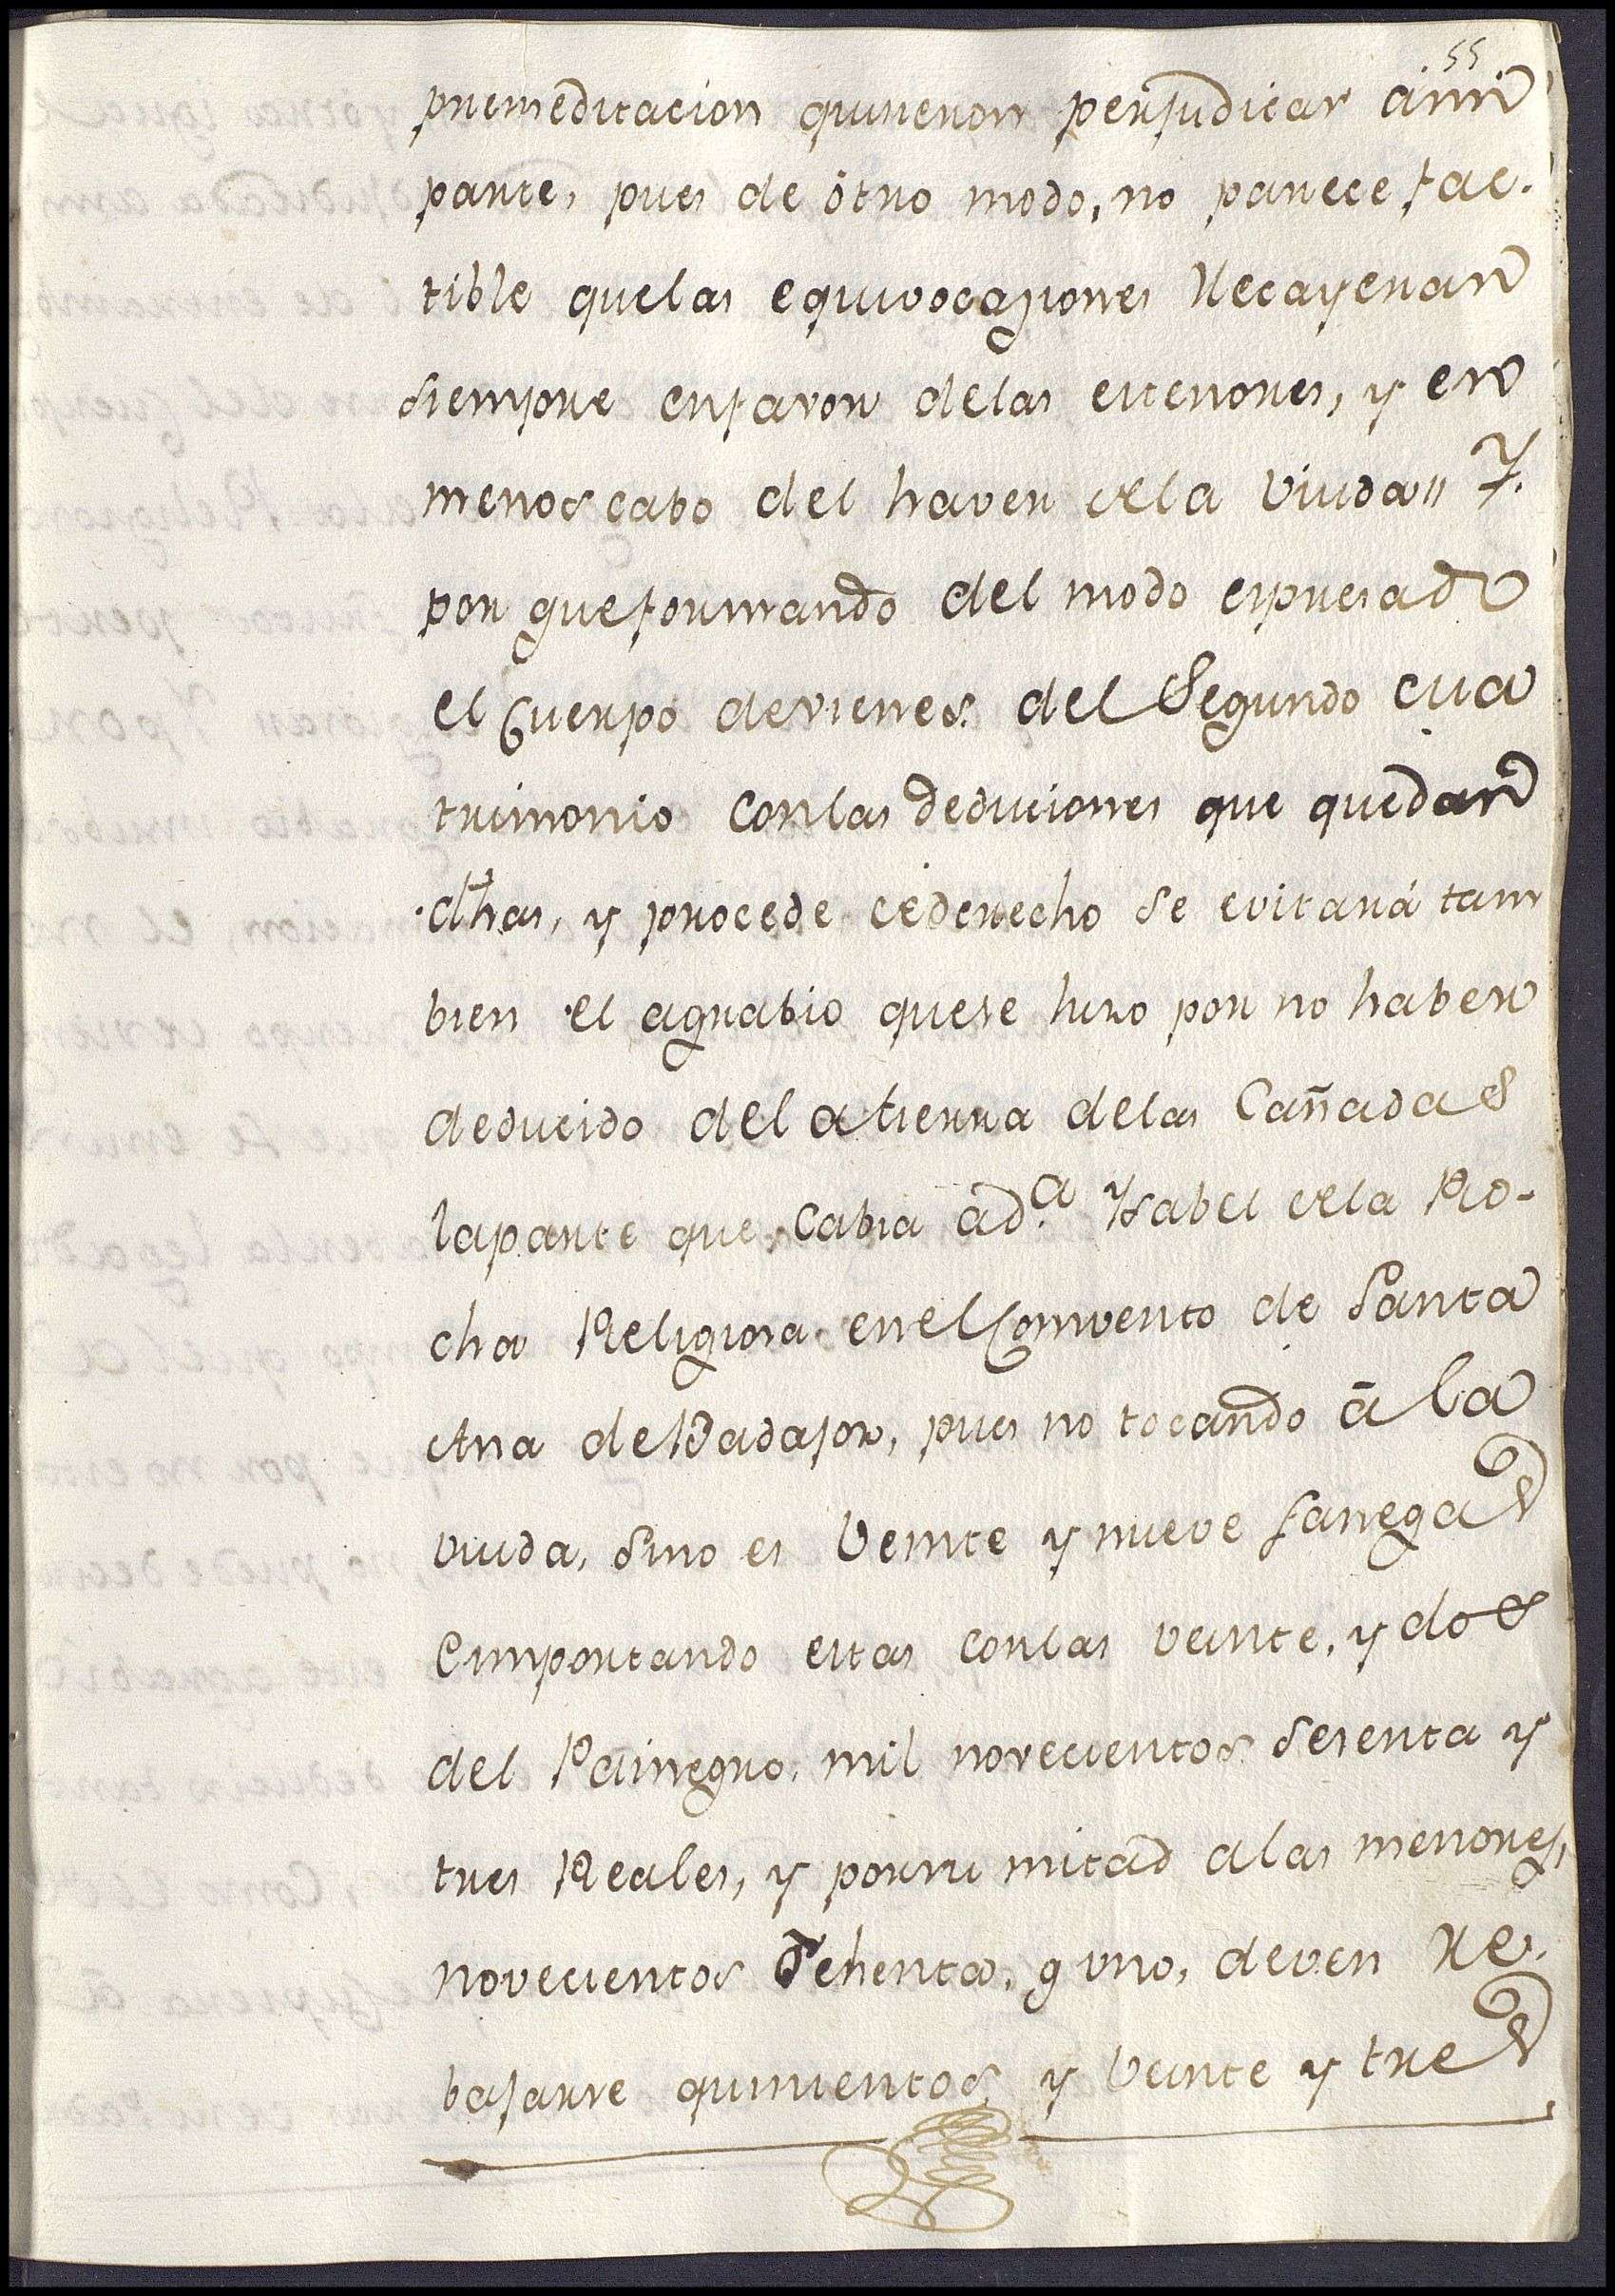 55
premeditacion quisieron perjudicar â mi
parte, pues de ôtro modo, no parece fac-
tible que las equivocaziones Recayeran
siempre en favor de las menores, y en
menoscabo del haver de la Viuda // Y.
por que formando del modo expresado
el Cuerpo de vienes del Segundo cua
trimonio con las deduciones que quedan
dhas, y procede de derecho se evitará tam
bien el agrabio que se hizo por no haber
deducido de la tierra de las Cañadas
la parte que Cabia â d.ª Ysabel de la Ro-
cha Religiosa en el Convento de Santa
Ana de Badajoz, pues no tocando â la
viuda, sino es Veinte y nueve fanegas
e importando estas con las veinte, y dos
del mil novecientos sesenta y
tres Reales, y por su mitad a las menores,
novecientos Ochenta, y uno, deven Re-
bajarse quinientos y Veinte y tres